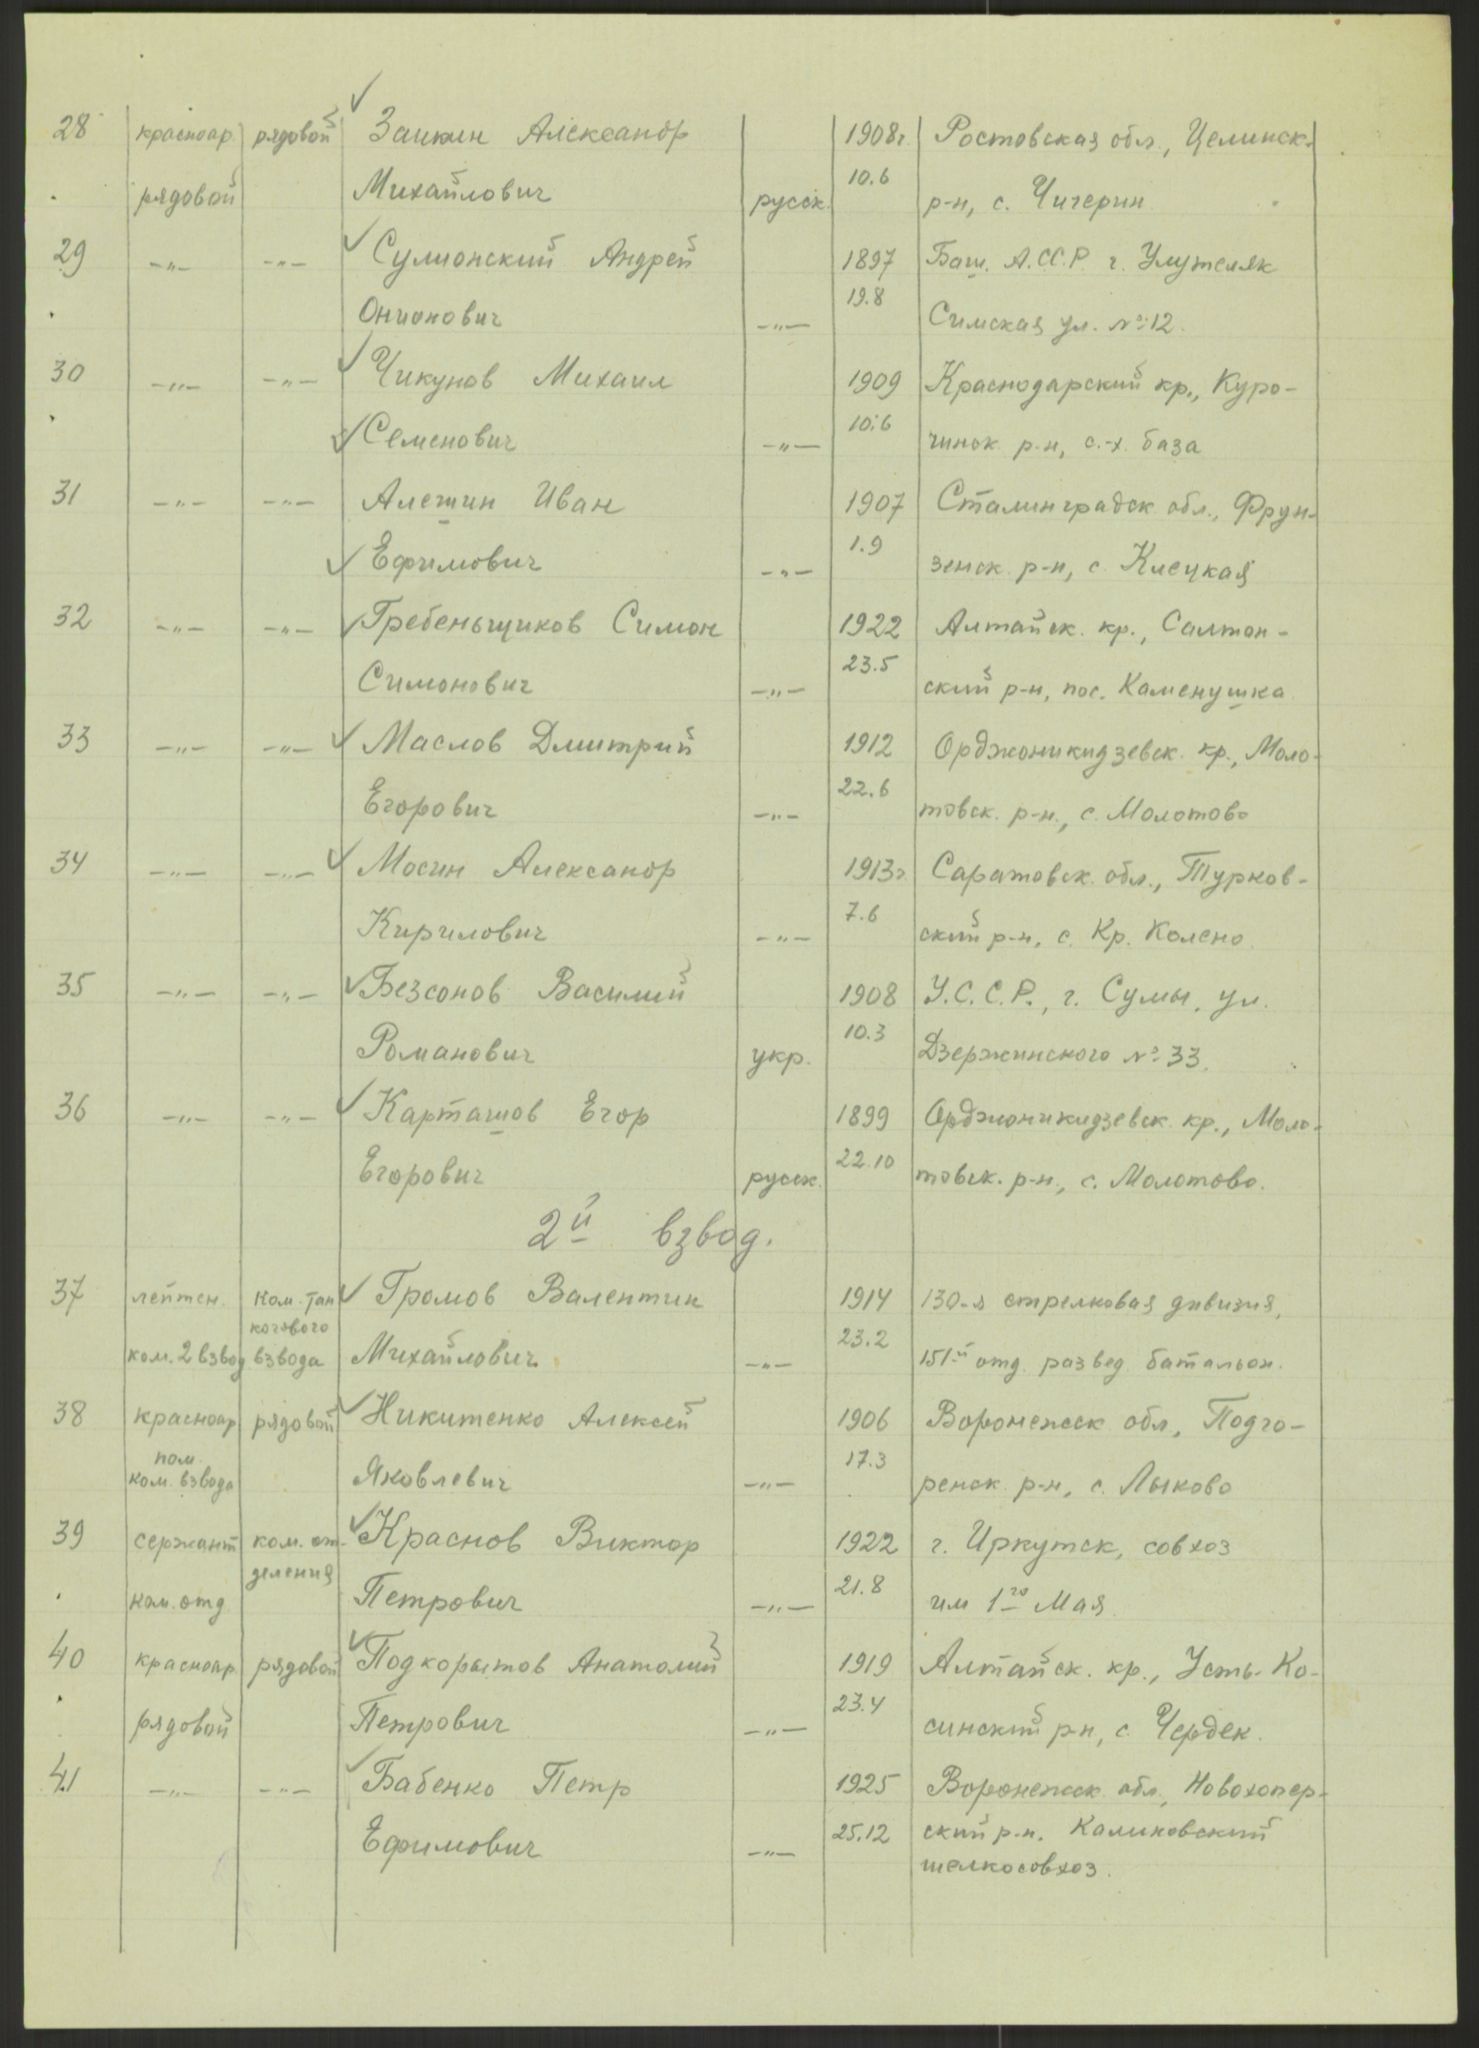 28 красноар. рядовой Заикин Александр 1908г. Ростовская обл., Целинск.
рядовой Михайлович русск. 10.6 р-н, с. Чичерин
29 -"- -"- Сулионский Андрей 1897 Баш. А.ССР. г. Улутеляк
Онионович -"- 19.8 Симская ул. №12.
30 -"- -"- Чикунов Михаил 1909 Краснодарский кр., Куро-
Семенович -"- 10.6 чинск. р-н, с.-х. база
31 -"- -"- Алешин Иван 1907 Сталинградск. обл., Фрун-
Ефимович -"- 1.9 зенск. р-н, с. Клецкая
32 -"- -"- Гребеньщиков Симон 1922 Алтайск. кр., Салтон-
Симонович -"- 23.5 ский р-н, пос. Каменушка
33 -"- -"- Маслов Дмитрий 1912 Орджоникидзевск. кр., Моло-
Егорович -"- 22.6 товск. р-н., с. Молотово
34 -"- -"- Мосин Александр 1913г. Саратовск. обл., Турков-
Кирилович -"- 7.6 ский р-н, с. Кр. Колено.
35 -"- -"- Безсонов Василий 1908 У.С.С.Р., г. Сумы, ул.
Романович укр. 10.3 Дзержинского №33.
36 -"- -"- Карташов Егор 1899 Орджоникидзевск. кр., Моло-
Егорович русск. 22.10 товск. р-н., с. Молотово.
2й взвод.
37 лейтен. ком. тан Громов Валентин 1914 130-я стрелковая дивизия,
кового
ком. 2 взвод взвода Михайлович -"- 23.2 151й отд. развед. батальон.
38 красноар рядовой Никитенко Алексей 1906 Воронежск обл., Подго-
пом.
ком. взвода Яковлевич -"- 17.3 ренск. р-н, с. Лыково
39 сержант ком. от- Краснов Виктор 1922 г. Иркутск, совхоз
деления
ком. отд. Петрович -"- 21.8 им 1го Мая
40 красноар. рядовой Подкорытов Анатолий 1919 Алтайск. кр., Усть-Ко-
рядовой Петрович -"- 23.4 синский р-н, с. Чердек.
41 -"- -"- Бабенко Петр 1925 Воронежск. обл., Новохопер-
Ефимович -"- 25.12 ский р-н. Калиновский
шелкосовхоз.